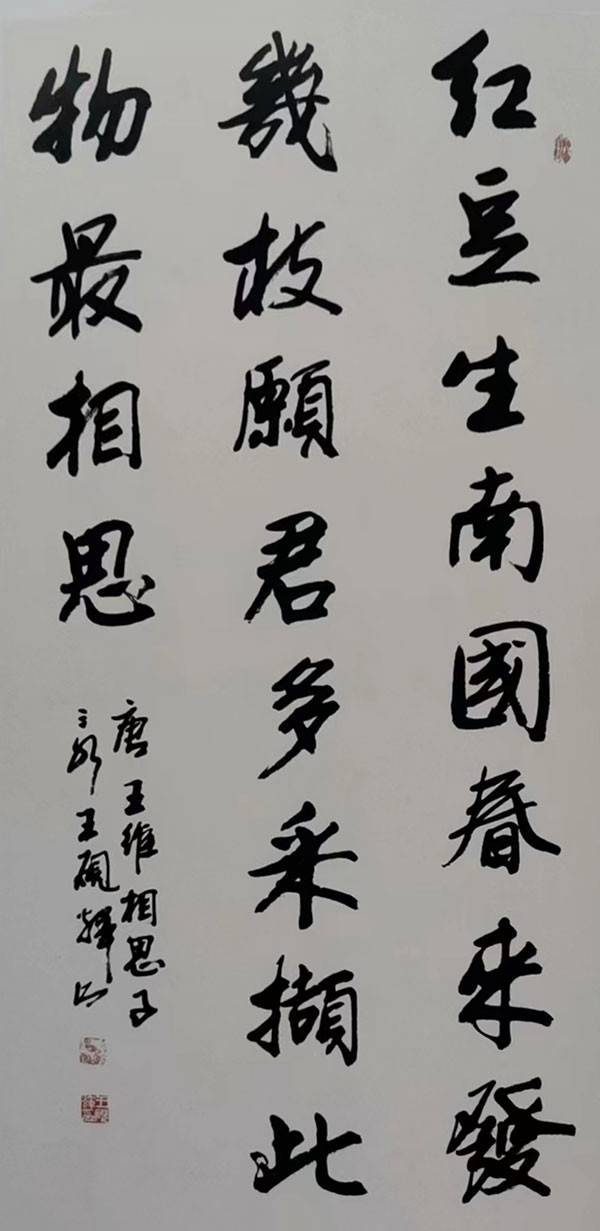 红豆生南國春来發
幾枝願君多采擷此
物最相思
唐王维相思子
王砚輝书